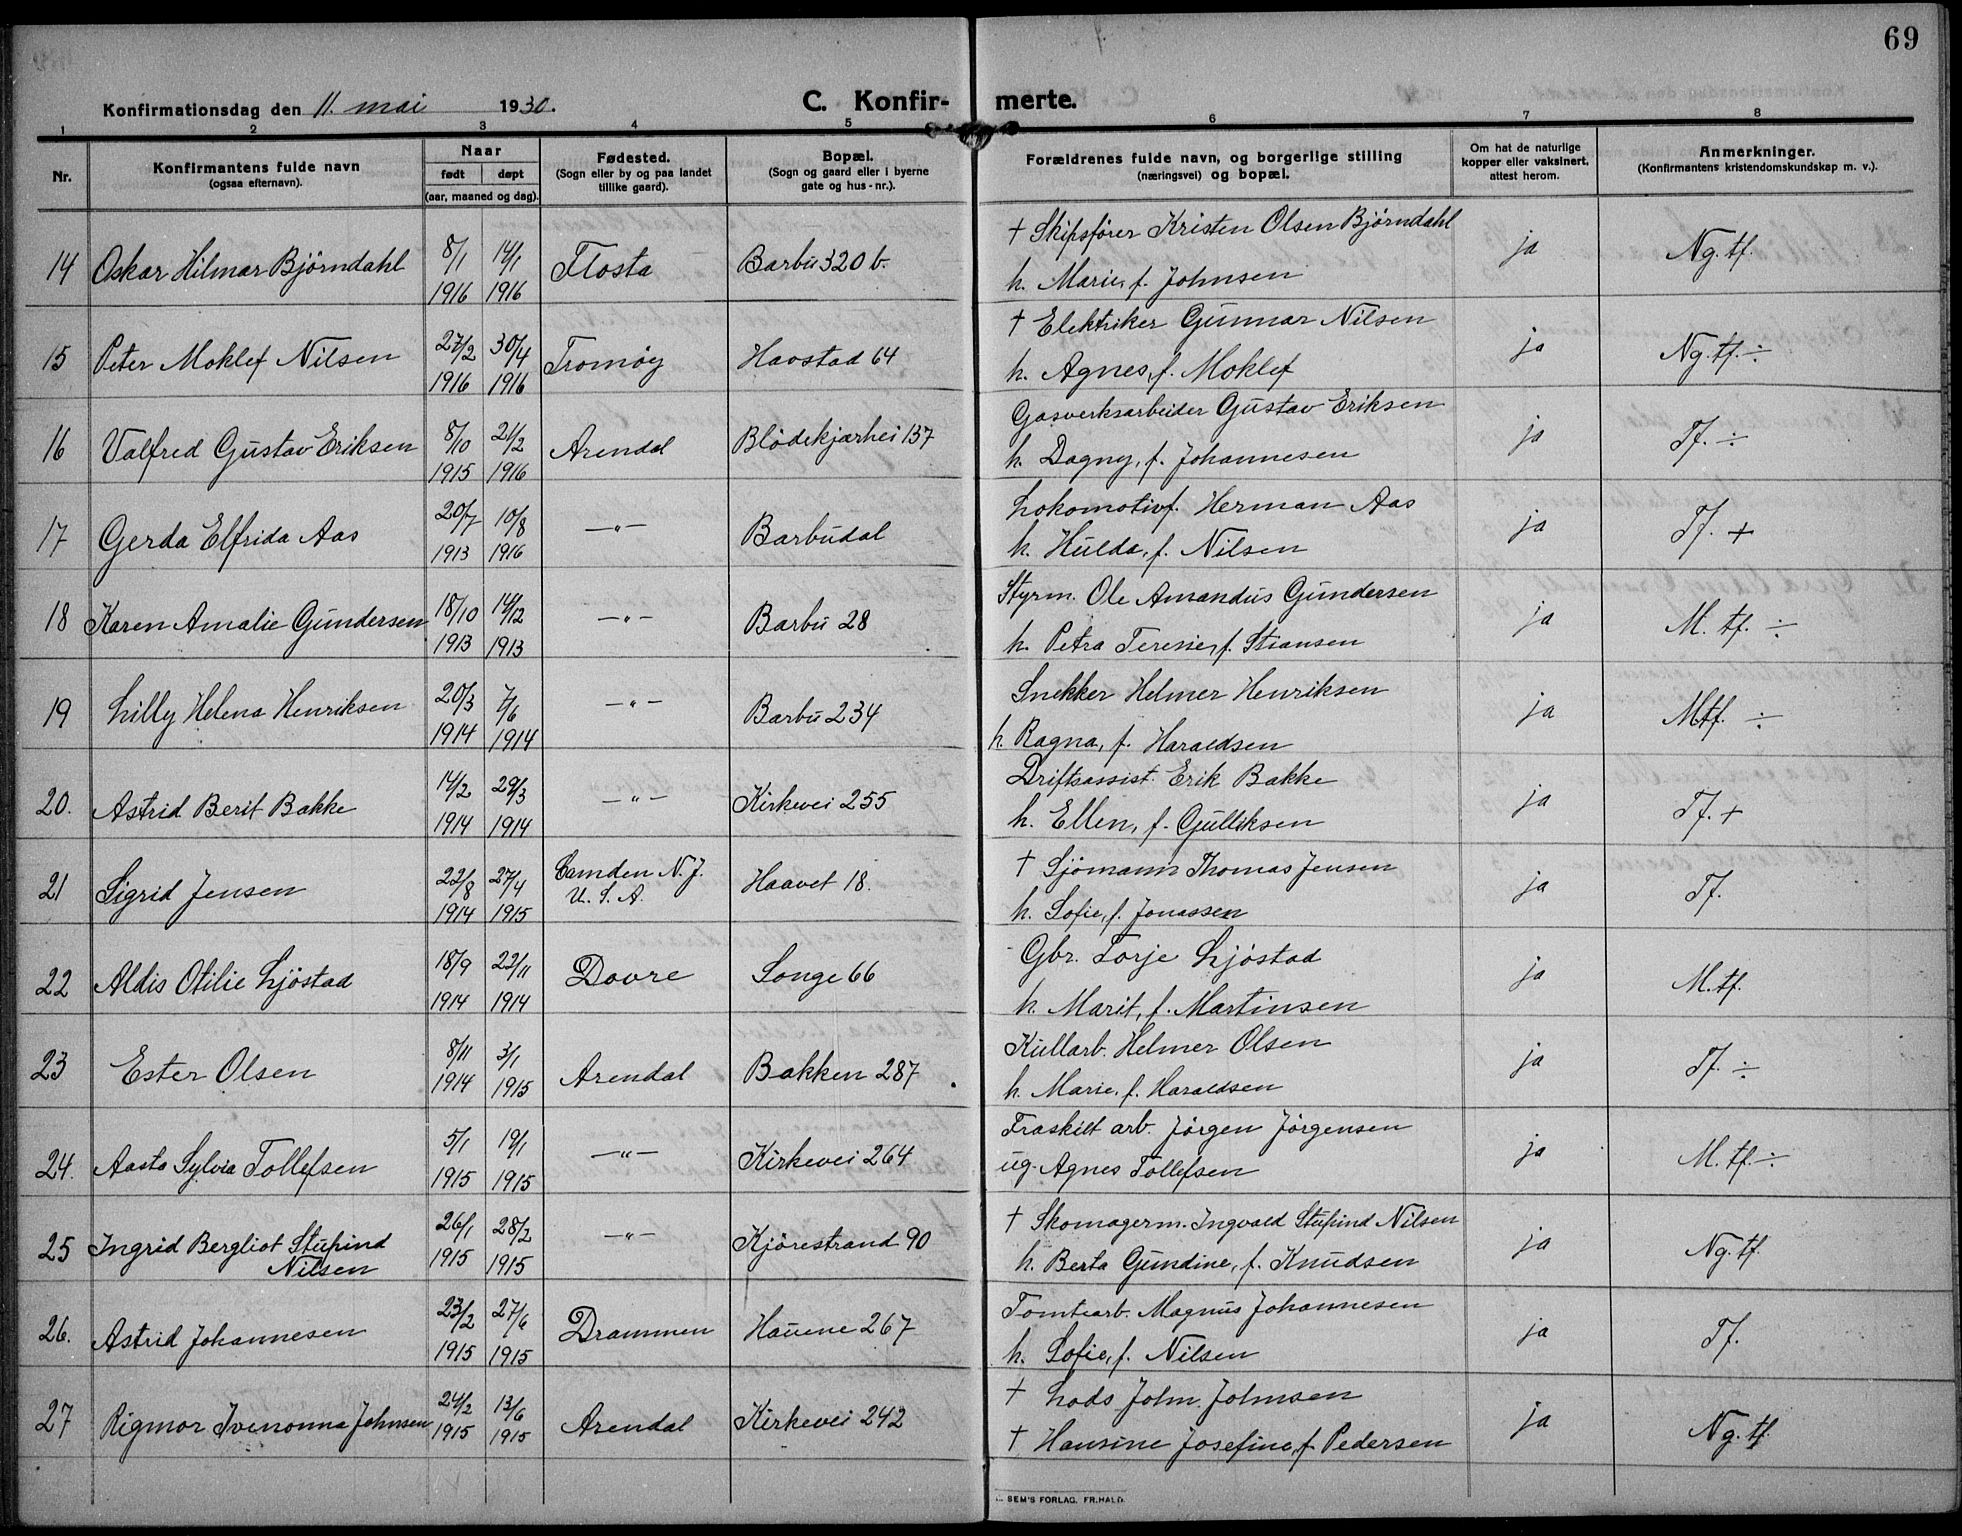 69
Konfirmationsdag den 11. mai 1930.
C. Konfirmerte.
1 2 3 4 5 6 7 8
Nr.
Konfirmantens fulde navn
(ogsaa efternavn).
Naar
født døpt
(aar, maaned og dag).
Fødested.
(Sogn eller by og paa landet
tillike gaard).
Bopæl.
(Sogn og gaard eller i byerne
gate og hus-nr.).
Forældrenes fulde navn, og borgerlige stilling
(næringsvei) og bopæl.
Om hat de naturlige
kopper eller vaksinert,
attest herom.
Anmerkninger.
(Konfirmantens kristendomskundskap m. v.).
14 Oskar Hilmar Bjørndahl 8/1 1916 14/1 1916 Flosta Barbu 320 b. † Skipsfører Kristen Olsen Bjørndahl
h. Marie, f. Johnsen ja Ng. tf.
15 Peter Moklef Nilsen 27/2 1916 30/4 1916 Tromøy Havstad 64 † Elektriker Gunnar Nilsen
h. Agnes, f. Moklef ja Ng. tf. ÷
16 Valfred Gustav Eriksen 8/10 1915 21/2 1916 Arendal Blødekjærhei 137 Gasverksarbeider Gustav Eriksen
h. Dagny, f. Johannesen ja Tf. ÷
17 Gerda Elfrida Aas 20/7 1913 10/8 1916 —"— Barbudal Lokomotivf. Herman Aas
h. Hulda, f. Nilsen ja Tf. +
18 Karen Amalie Gundersen 18/10 1913 14/12 1913 —"— Barbu 28 Styrm. Ole Amandus Gundersen
h. Petra Teresie, f. Stiansen ja M. tf. ÷
19 Lilly Helena Henriksen 20/3 1914 7/6 1914 —"— Barbu 234 Snekker Helmer Henriksen
h. Ragna, f. Haraldsen ja Mtf. ÷
20. Astrid Berit Bakke 14/2 1914 29/3 1914 —"— Kirkevei 255 Driftsassist. Erik Bakke
h. Ellen, f. Gulliksen ja Tf. +
21 Sigrid Jensen 22/8 1914 27/4 1915 Camden N. J.
U. S. A. Haavet 18. † Sjømann Thomas Jensen
h. Sofie, f. Jonassen ja Tf.
22 Aldis Otilie Ljøstad 18/9 1914 22/11 1914 Dovre Songe 66 Gbr. Torje Ljøstad
h. Marit, f. Martinsen ja M. tf.
23 Ester Olsen 8/11 1914 3/1 1915 Arendal Bakken 287 Kullarb. Helmer Olsen
h. Marie, f. Haraldsen ja Tf. ÷
24. Aasta Sylvia Tollefsen 5/1 1915 19/1 1915 —"— Kirkevei 264 Fraskilt arb. Jørgen Jørgensen
ug. Agnes Tollefsen ja M. tf. ÷
25 Ingrid Bergliot Stupind
Nilsen 26/1 1915 28/2 1915 —"— Kjørestrand 90 † Skomagerm. Ingvald Stupind Nilsen
h. Berta Gundine, f. Knudsen ja Ng. tf.
26. Astrid Johannesen 23/2 1915 27/6 1915 Drammen Hauene 267 Tomtearb. Magnus Johannesen
h. Sofie, f. Nilsen ja Tf.
27 Rigmor Ivenonna Johnsen 24/2 1915 13/6 1915 Arendal Kirkevei 242 † Lods John Johnsen
† Hansine Josefine, f. Pedersen ja Ng. tf.
SEM'S FORLAG, FR.HALD.